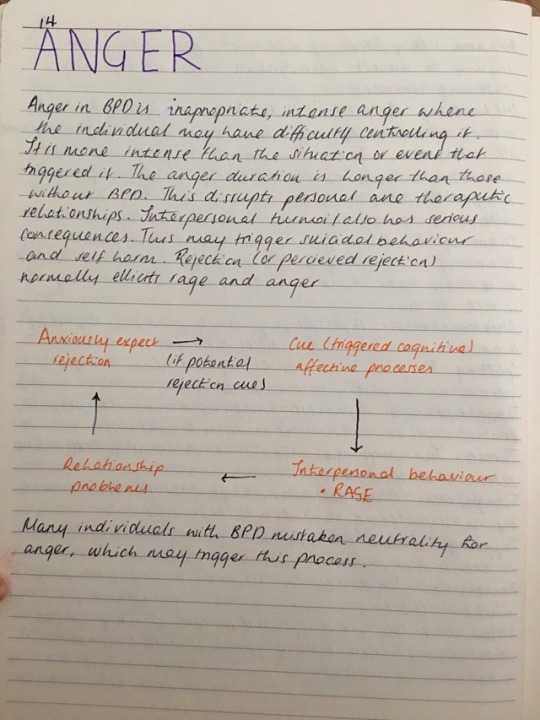 14
ANGER
Anger in BPD is inapropriate, intense anger where
the individual may have difficultly controlling it.
It is more intense than the situation or event that
triggered it. The anger duration is longer than those
without BPD. This disrupts personal and theraputic
relationships. Interpersonal turmoil also has serious
consequences. This may trigger suicidal behaviour
and self harm. Rejection (or percieved rejection)
normally ellicits rage and anger
Anxiously expect → Cue (triggered cognitive)
rejection (if potential affective processes
rejection cues)
Relationship ← Interpersonal behaviour
problems • RAGE
Many individuals with BPD mistaken neutrality for
anger, which may trigger this process.